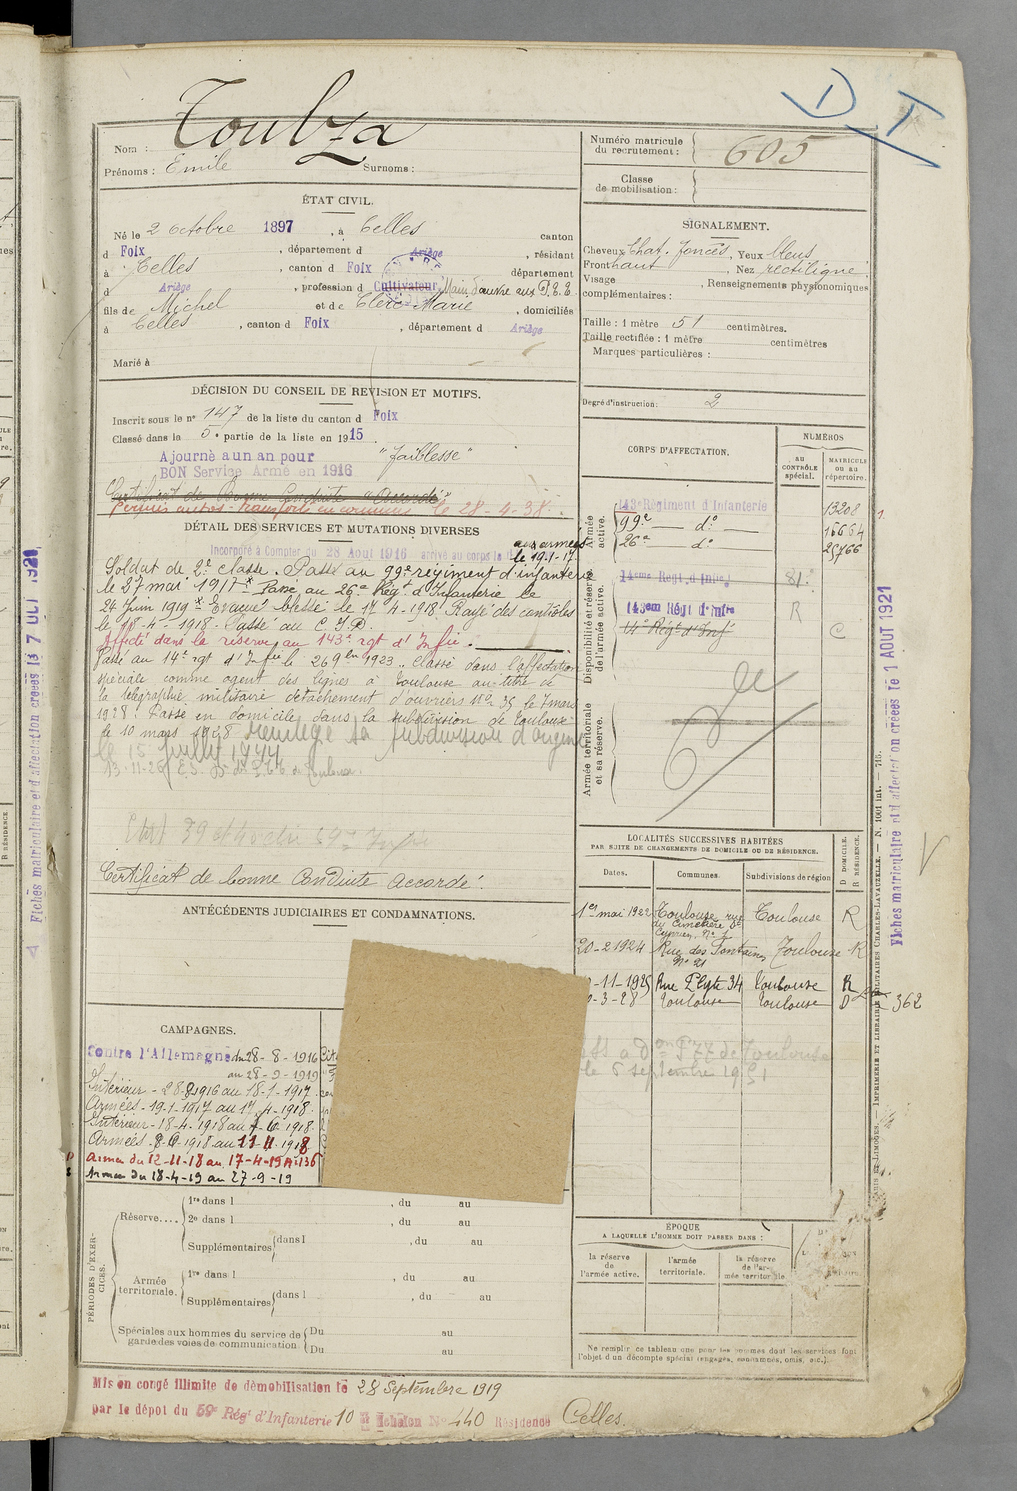 D T
Toulza
Nom :
Prénoms : Emile Surnoms :
Numéro matricule du recrutement : 605
Classe de mobilisation :
ÉTAT CIVIL.
Né le 2 Octobre 1897, à Celles canton
d Foix, département d Ariège, résidant
à Celles, canton d Foix département
d Ariège, profession d Cultivateur Main d'œuvre aux P.T.T.
fils de Michel et de Clerc Marie, domiciliés
à Celles, canton d Foix, département d Ariège
Marié à
SIGNALEMENT.
Cheveux Chat. foncés, Yeux bleus
Front haut, Nez rectiligne.
Visage , Renseignements physionomiques
complémentaires :
Taille : 1 mètre 51 centimètres.
Taille rectifiée : 1 mètre centimètres
Marques particulières :
Degré d'instruction : 2
DÉCISION DU CONSEIL DE REVISION ET MOTIFS.
Inscrit sous le n° 147 de la liste du canton d Foix
Classé dans le 5e partie de la liste en 1915.
Ajourné a un an pour "faiblesse"
BON Service Armé en 1916
Certificat de Bonne Conduite "Accordé"
Permis autos-transports en commun le 28-4-38.
DÉTAIL DES SERVICES ET MUTATIONS DIVERSES
aux armées
Incorporé à Compter du 28 Août 1916 arrivé au corps le
le 19-1-17.
Soldat de 2e classe. Passé au 99e régiment d'infanterie
le 27 mai 1917 Passé au 26e Régt d'Infanterie le
24 Juin 1919 Evacué blessé le 17-4-1918. Rayé des contrôles
le 18-4-1918. Passé au C.I.D.
Affecté dans la réserve au 143e rgt d'Infie.
Passé au 14e rgt d'Infie le 26 9bre 1923. Classé dans l'affectation
spéciale comme agent des lignes à Toulouse au titre de
la télégraphie militaire détachement d'ouvriers le 7 mars
1928. Passé en domicile dans la subdivision de Toulouse
le 10 mars 1928 réintégré sa subdivision d'origine
le 15 juillet 1944
Certificat de bonne Conduite accordé.
CORPS D'AFFECTATION.
NUMÉROS
au CONTRÔLE spécial.
MATRICULE ou au répertoire.
Armée active.
143e Régiment d'Infanterie 13208
99e — do — 16664
26e do — 25766
Disponibilité et réserve de l'armée active.
14eme Regt. d'Infie
143em Régt d'Infie R
14e Régt d'Inf C
Armée territoriale et sa réserve.
ANTÉCÉDENTS JUDICIAIRES ET CONDAMNATIONS.
LOCALITÉS SUCCESSIVES HABITÉES
PAR SUITE DE CHANGEMENTS DE DOMICILE OU DE RÉSIDENCE.
Dates. Communes. Subdivisions de région D DOMICILE. R RÉSIDENCE.
1er mai 1922 Toulouse rue du Cimetière St Cyprien, No 1 Toulouse R
20-2-1924 Rue des Fontaines No 21 Toulouse R
-11-1925 Rue Plyte 34 Toulouse R
-3-28 Toulouse Toulouse D 362
de Toulouse
le 6 septembre 1951
CAMPAGNES.
Contre l'Allemagne du 28-8-1916
au 28-9-1919
Intérieur - 28-8-1916 au 18-1-1917.
Armées - 19-1-1917 au 17-4-1918.
Intérieur - 18-4-1918 au 7-10-1918.
Armées 8-10-1918 au 11-11-1918
Armée du 12-11-18 au 17-4-19
Armée du 18-4-19 au 27-9-19
PÉRIODES D'EXERCICES.
Réserve.... 1re dans l , du au
2e dans l , du au
Supplémentaires dans l , du au
Armée territoriale. 1re dans l , du au
Supplémentaires dans l , du au
Spéciales aux hommes du service de garde des voies de communication Du au
Du au
ÉPOQUE
A LAQUELLE L'HOMME DOIT PASSER DANS :
la réserve de l'armée active.
l'armée territoriale.
la réserve de l'armée territoriale
Ne remplir ce tableau que pour les hommes dont les services font
l'objet d'un décompte spécial (engagés, réformés, omis, etc.).
Mis en congé illimité de démobilisation le 28 Septembre 1919
par le dépôt du 59e Régt d'Infanterie 10e Echelon No 440 Résidence Celles.
Fiches matriculaire et d'affectation créées le 1 AOUT 1921
Fiches matriculaire et d'affectation créées le 7 OCT 1921
PARIS ET LIMOGES. — IMPRIMERIE ET LIBRAIRIE MILITAIRES CHARLES-LAVAUZELLE. — N. 1001 int. — 715.